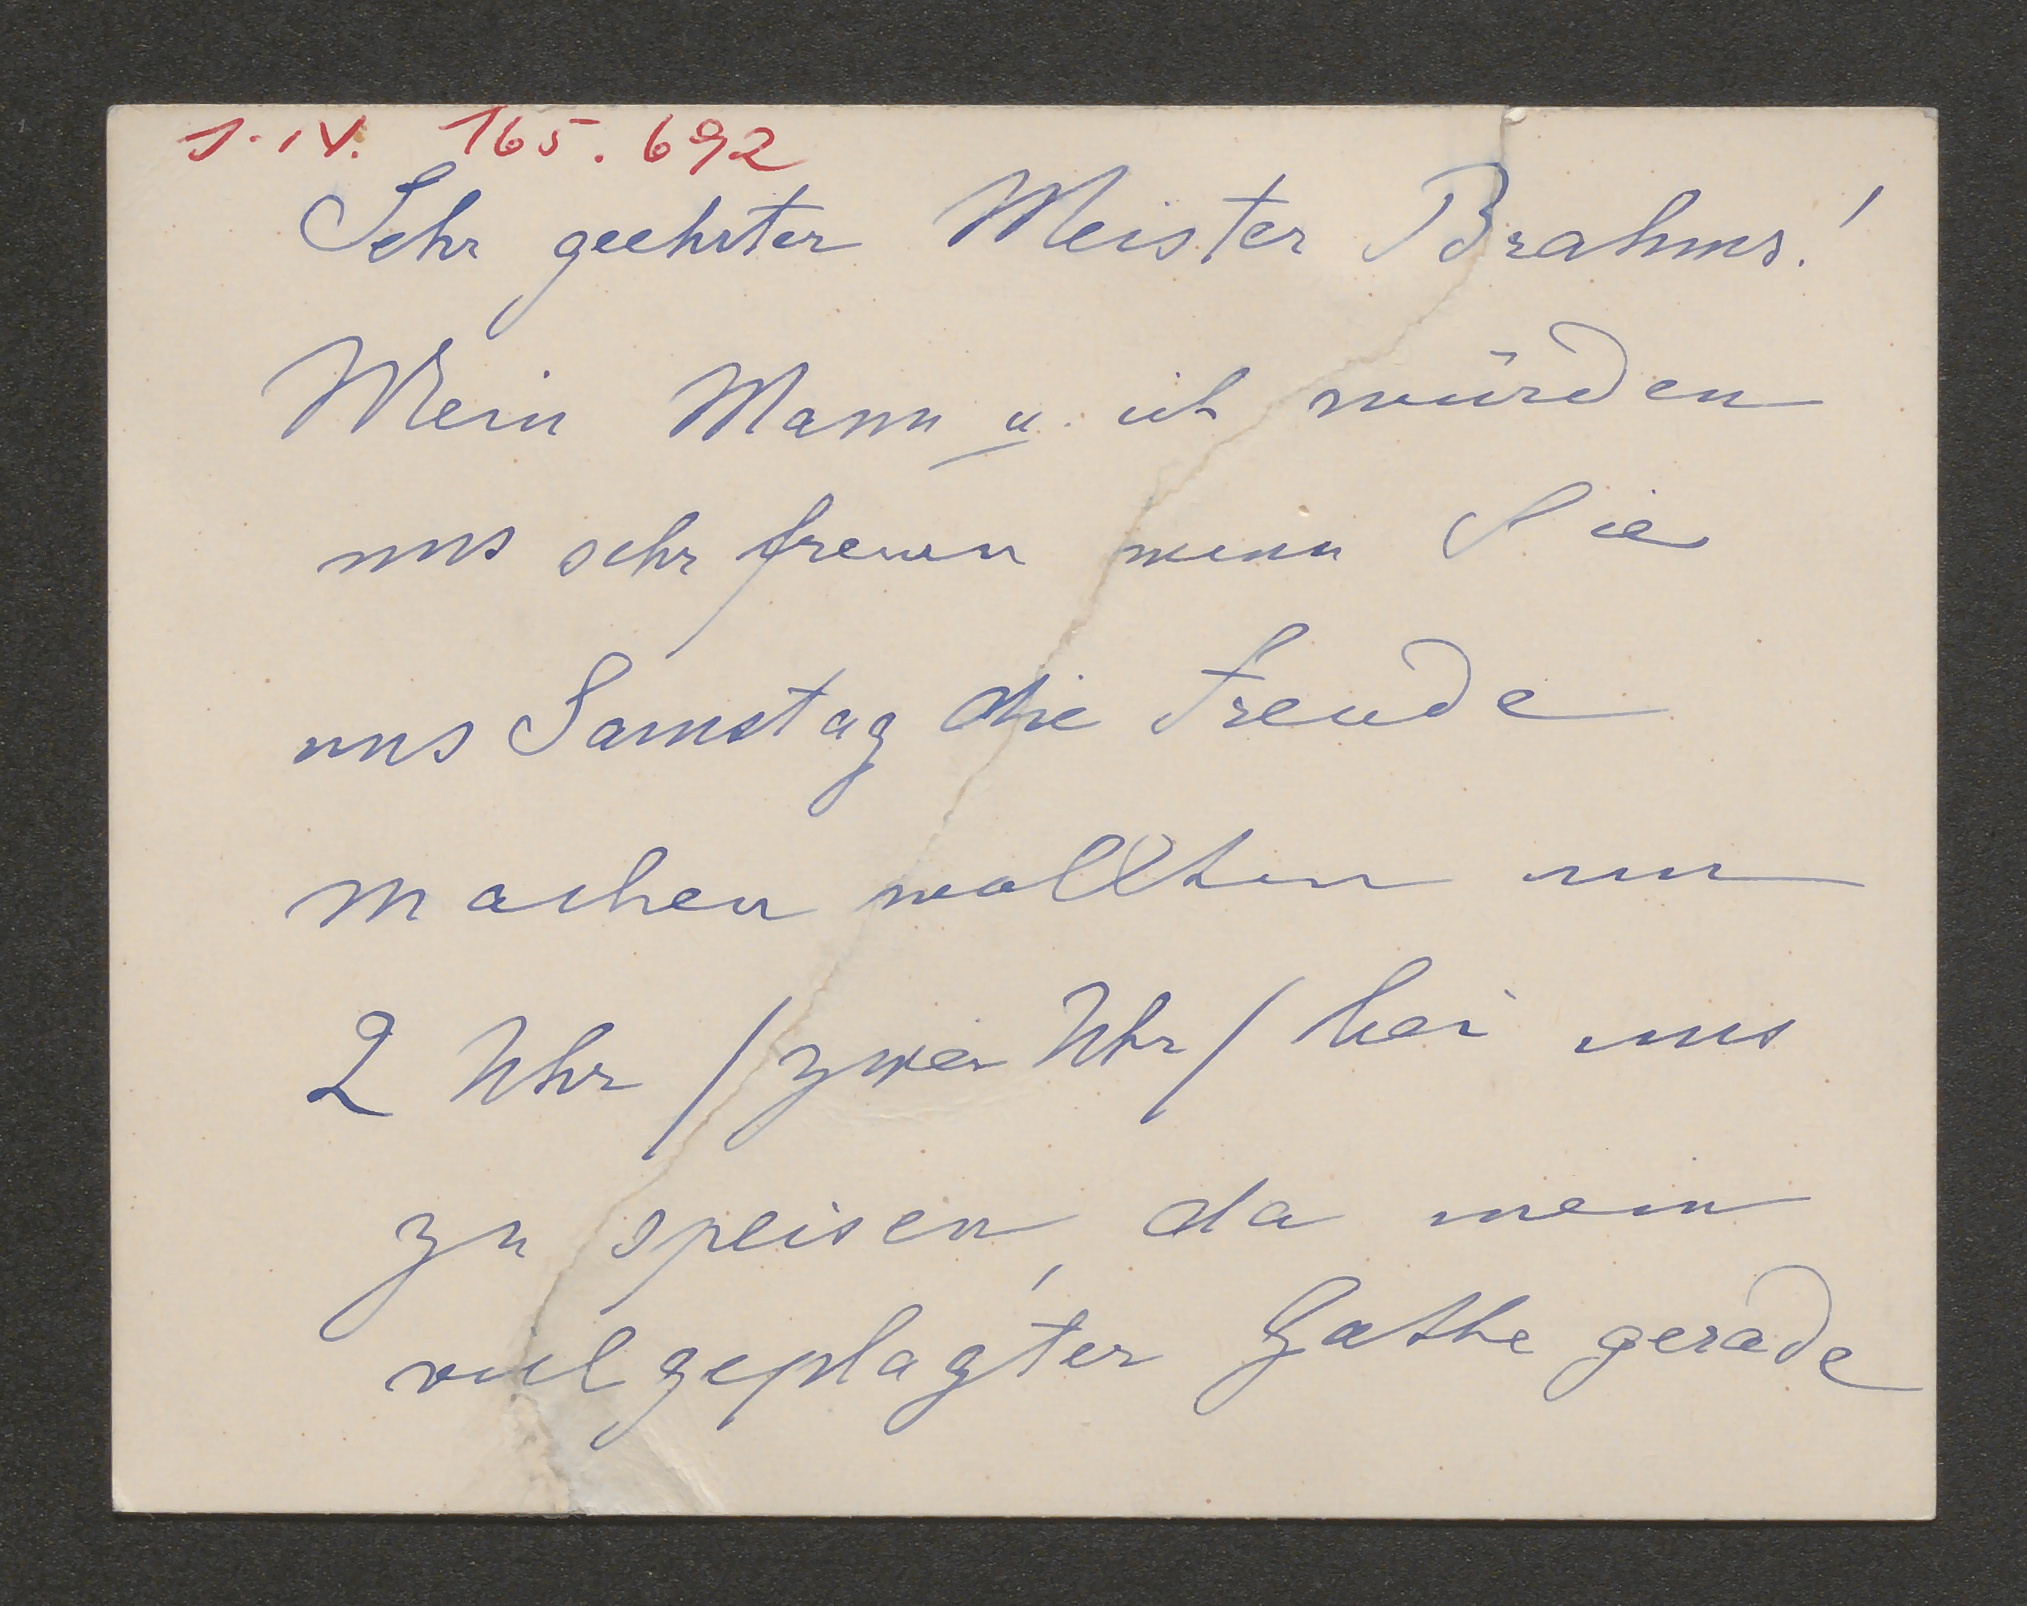 J. IV. 165.692
Sehr geehrter Meister Brahms!
Mein Mann u. ich würden
uns sehr freuen wenn Sie
uns Samstag die Freude
machen wollten um
2 Uhr / zwei Uhr / bei uns
zu speisen, da mein
vielgeplagter Gatte gerade